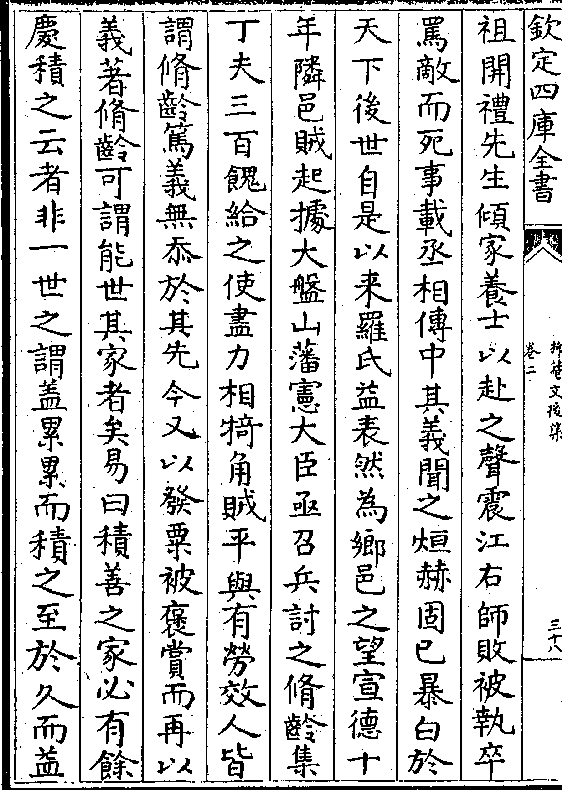 欽定四庫全書
卷二
三十八
祖開禮先生傾家養士以赴之聲震江右師敗被執卒
罵敵而死事載丞相傳中其義聞之烜赫固已暴白於
天下後世自是以来羅氏益表然為鄉邑之望宣德十
年隣邑賊起據大盤山藩憲大臣亟召兵討之脩齡集
丁夫三百餽給之使盡力相犄角賊平與有勞效人皆
謂脩齡篤義無忝於其先今又以發粟被褒賞而再以
義著脩齡可謂能世其家者矣易曰積善之家必有餘
慶積之云者非一世之謂盖累累而積之至於久而益